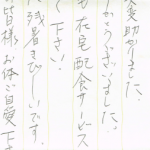 変助かりました。
がとうございました。
も在宅配食サービス
く下さい。
残暑きびしいです。
皆様お体ご自愛下さ